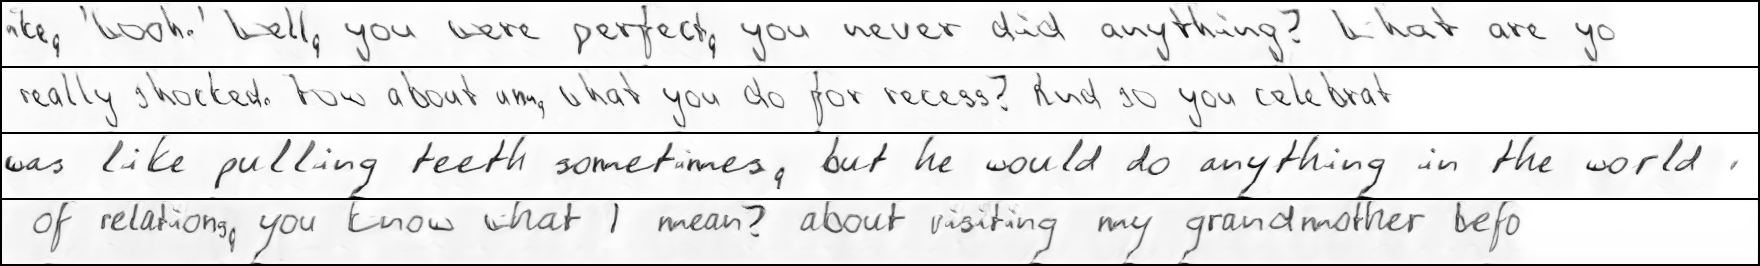 ike, 'Oooh.' Well, you were perfect, you never did anything? What are yo
really shocked. How about um, what you do for recess? And so you celebrat
was like pulling teeth sometimes, but he would do anything in the world
of relations, you know what I mean? about visiting my grandmother befo